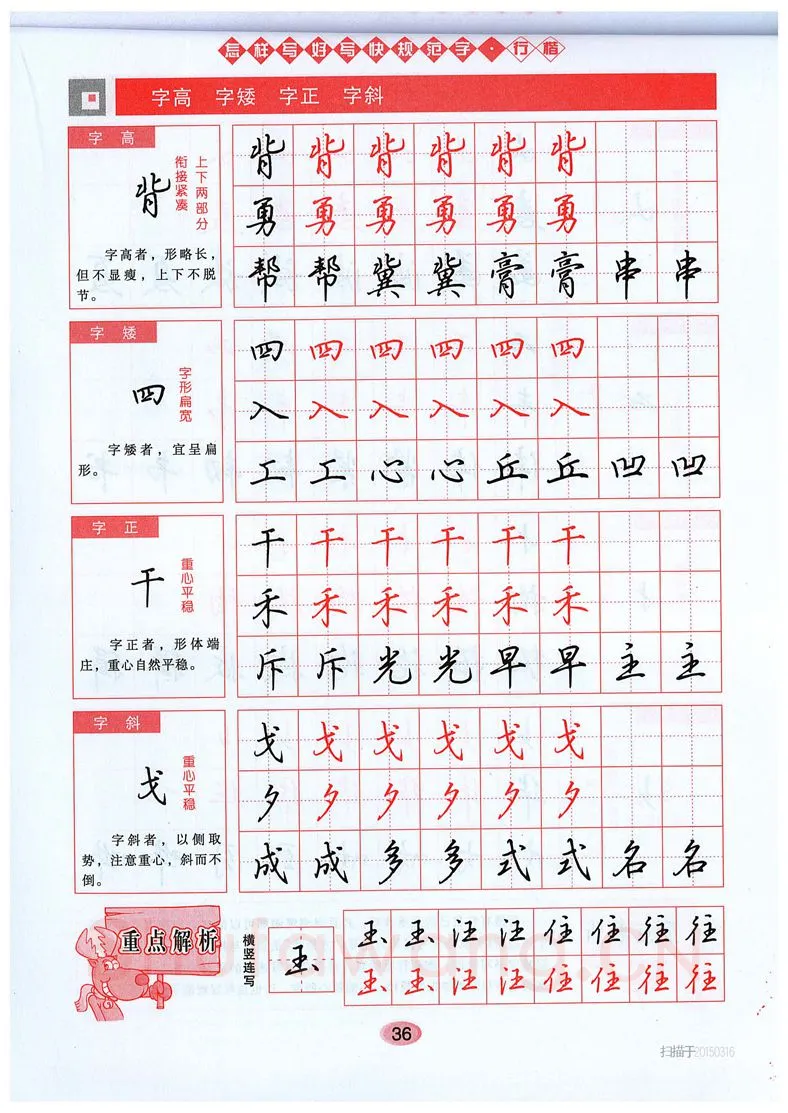 怎样写好写快规范字·行楷
字高 字矮 字正 字斜
字高
背
上下两部分
衔接紧凑
字高者，形略长，
但不显瘦，上下不脱
节。
背 背 背 背 背 背
勇 勇 勇 勇 勇 勇
帮 帮 冀 冀 膏 膏 串 串
字矮
四
字形扁宽
字矮者，宜呈扁
形。
四 四 四 四 四 四
入 入 入 入 入 入
工 工 心 心 丘 丘 凹 凹
字正
干
重心平稳
字正者，形体端
庄，重心自然平稳。
干 干 干 干 干 干
禾 禾 禾 禾 禾 禾
斥 斥 光 光 早 早 主 主
字斜
戈
重心平稳
字斜者，以侧取
势，注意重心，斜而不
倒。
戈 戈 戈 戈 戈 戈
夕 夕 夕 夕 夕 夕
成 成 多 多 式 式 名 名
重点解析
横竖连写
玉
玉 玉 汪 汪 住 住 往 往
玉 玉 汪 汪 住 住 往 往
36
扫描于20150316